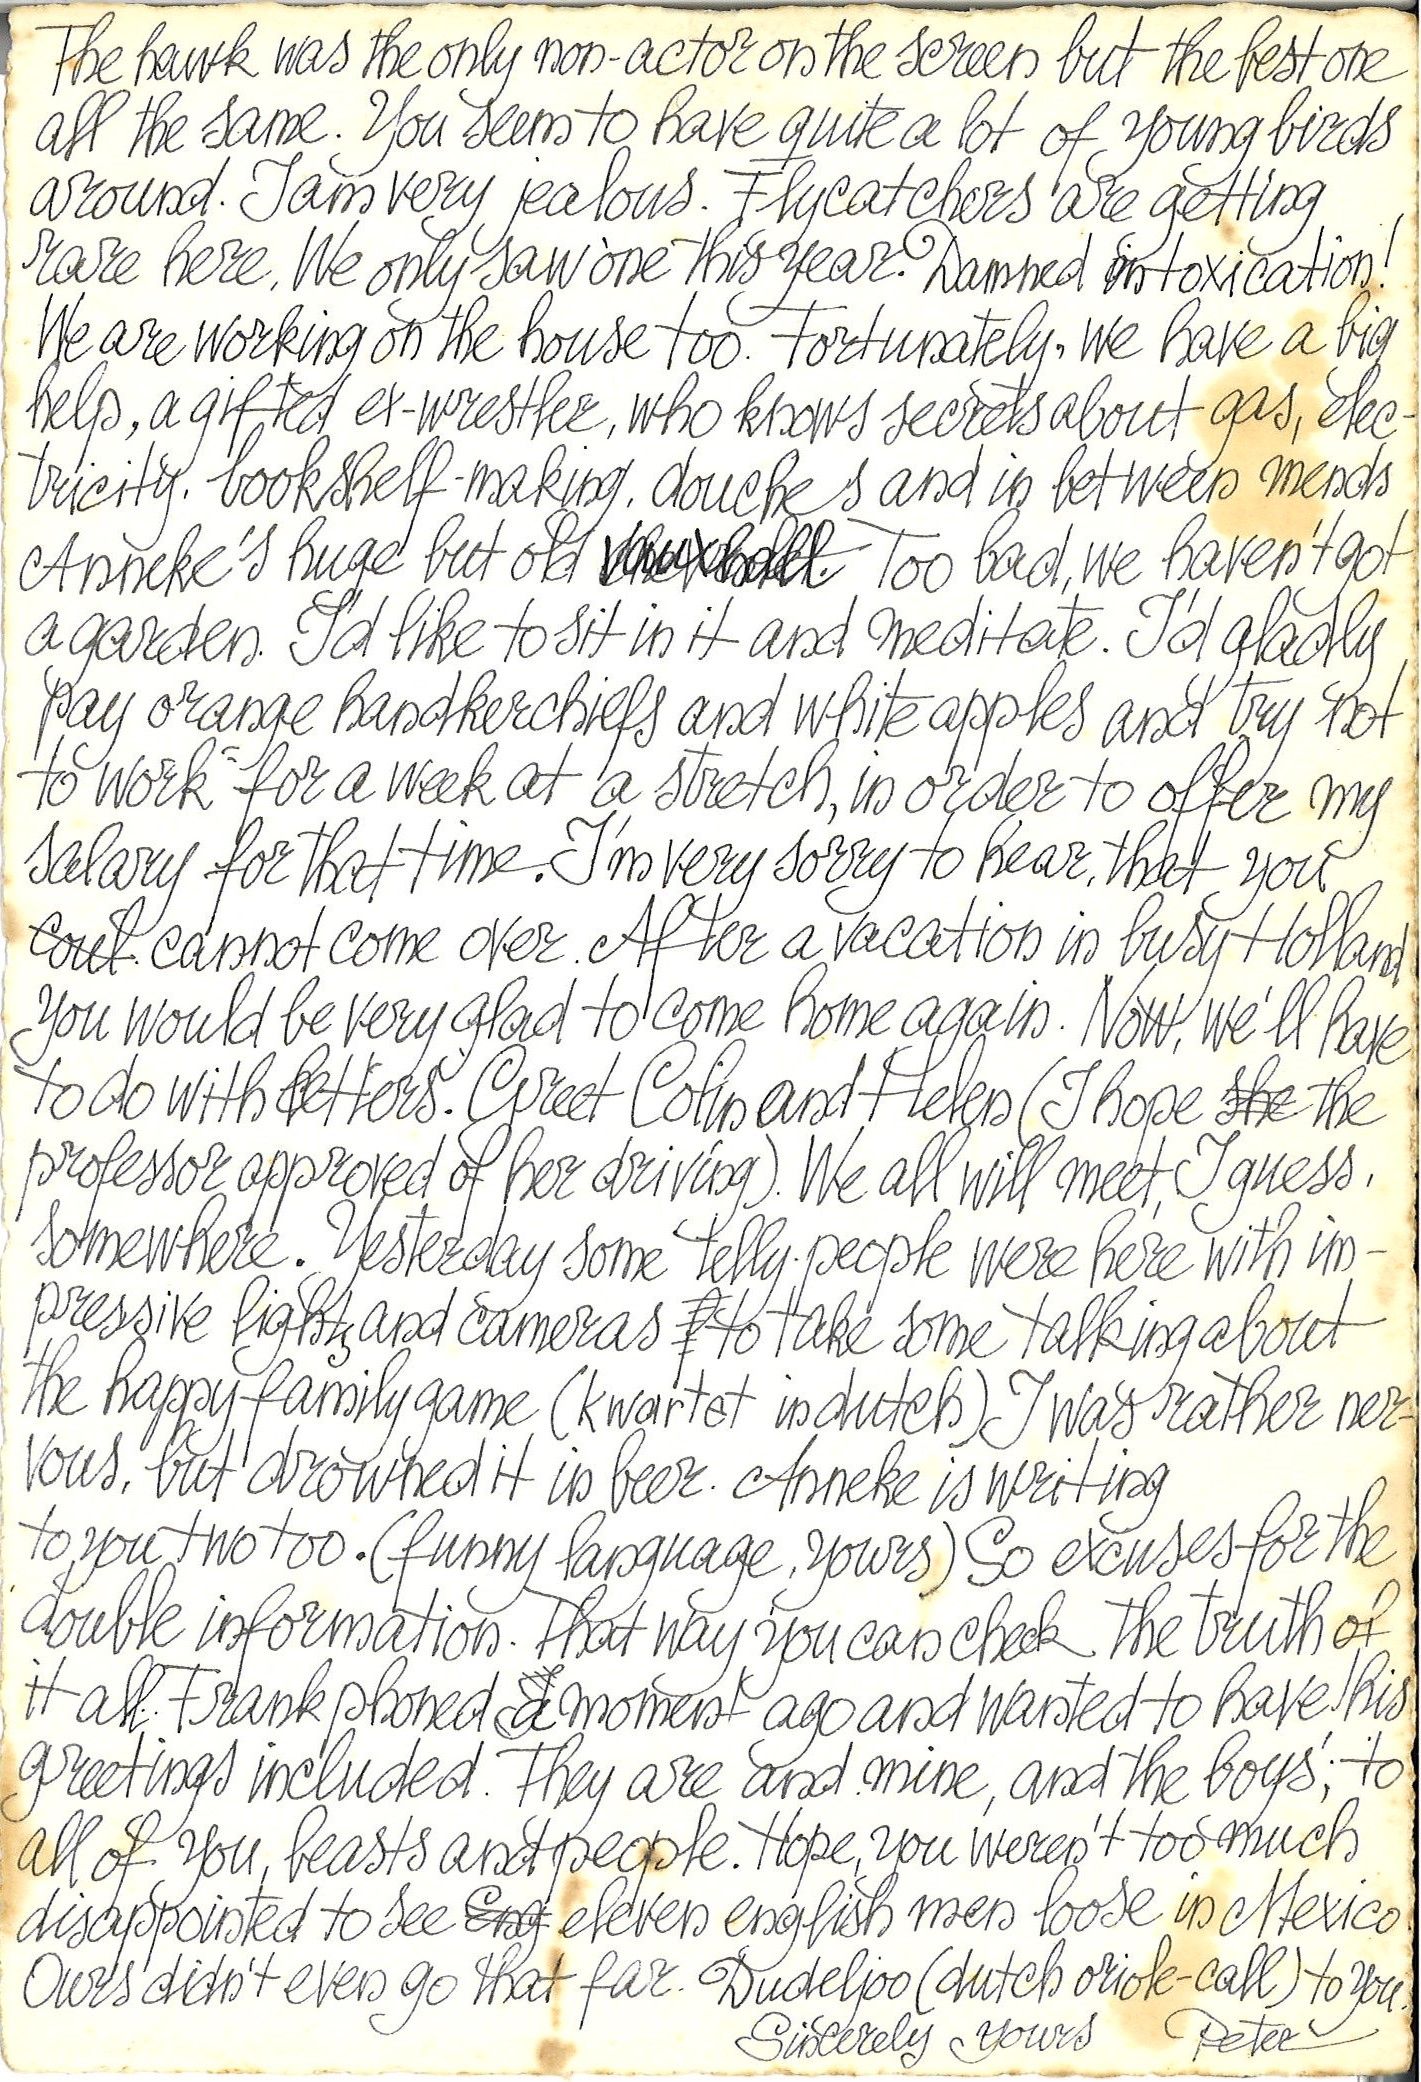 The hawk was the only non-actor on the screen but the best one
all the same. You seem to have quite a lot of young birds
around. I am very jealous. Flycatchers are getting
rare here. We only saw one this year. Damned intoxication!
We are working on the house too. Fortunately, we have a big
help, a gifted ex-wrestler, who knows secrets about gas, elec-
tricity, bookshelf-making, douches and in between mends
Anneke's huge but old Vauxhall. Too bad, we haven't got
a garden. I'd like to sit in it and meditate. I'd gladly
pay orange handkerchiefs and white apples and try not
to work - for a week at a stretch, in order to offer my
salary for that time. I'm very sorry to hear, that you
cannot come over. After a vacation in busy Holland
you would be very glad to come home again. Now, we'll have
to do with letters. Greet Colin and Helen (I hope she the
professor approved of her driving). We all will meet, I guess,
somewhere. Yesterday some telly-people were here with im-
pressive lights and cameras to take some talking about
the happy family game (kwartet in dutch) I was rather ner-
vous, but drowned it in beer. Anneke is writing
to you two too. (funny language, yours) So excuses for the
double information. That way you can check the truth of
it all. Frank phoned a moment ago and wanted to have his
greetings included. They are and mine, and the boys', to
all of you, beasts and people. Hope, you weren't too much
disappointed to see Eng eleven english men loose in Mexico.
Ours didn't even go that far. Dudeljoo (dutch oriole-call) to you.
Sincerely yours Peter